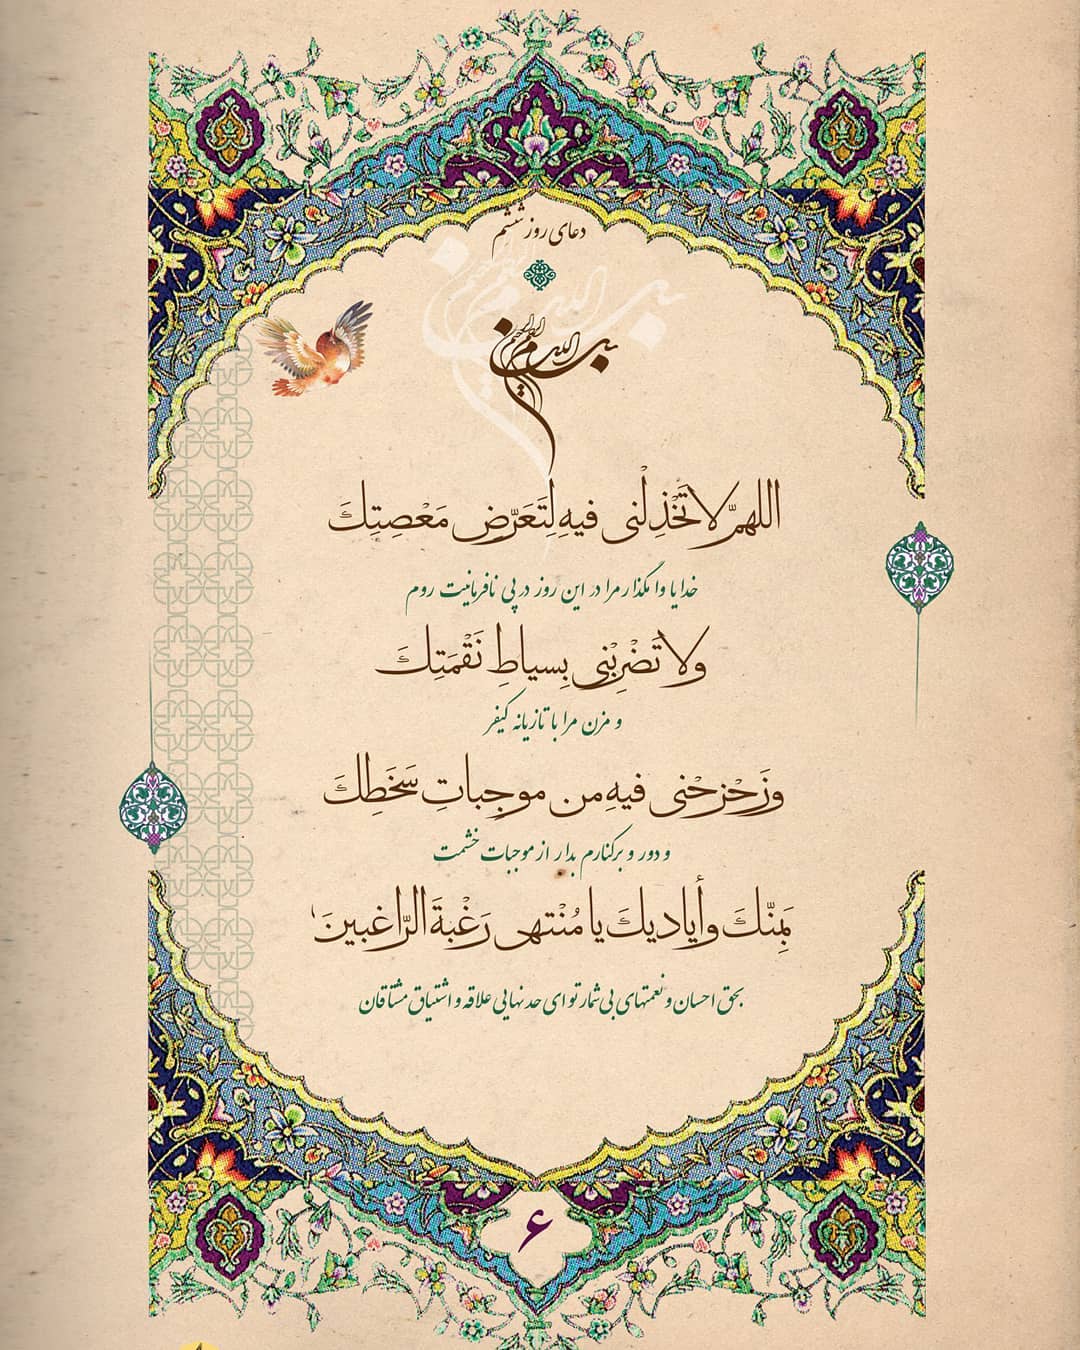 دعای روز ششم
بسم الله الرحمن الرحیم
اللهمّ لا تَخْذِلْنی فیهِ لِتَعَرّضِ مَعْصِیَتِكَ
خدایا وا مگذار مرا در این روز در پی نافرمانیت روم
ولا تَضْرِبْنی بِسیاطِ نَقْمَتِكَ
و مزن مرا با تازیانه کیفر
وزَحْزحْنی فیهِ من موجِباتِ سَخَطِكَ
و دور و برکنارم بدار از موجبات خشمت
بِمَنّكَ وأیادیكَ یا مُنْتهى رَغْبةَ الرّاغبینَ
بحق احسان و نعمتهای بی شمار تو ای حد نهایی علاقه و اشتیاق مشتاقان
۶